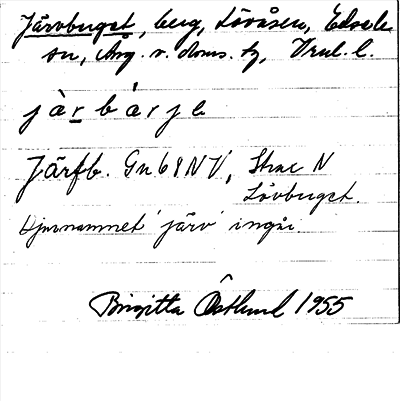 Järvberget, berg, Lövåsen, Edsele
sn, Ång. v. doms. tg, Vnl. l.
jàrbárjə
Järfb. Gn 68 NV, Strax N
Lövberget.
Djurnamnet järv ingår.
Birgitta Östlund 1955